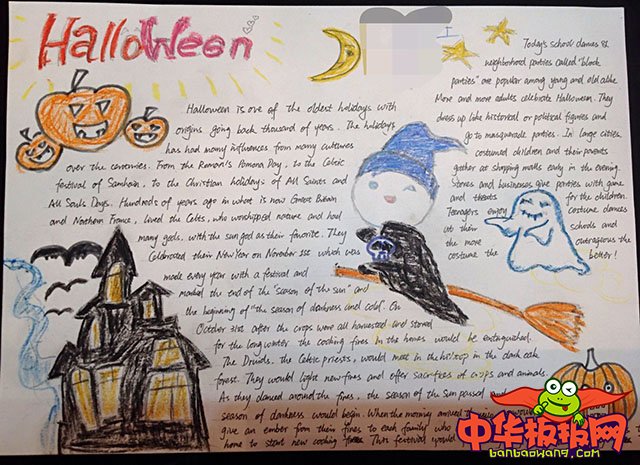 HalloWeen
Halloween is one of the oldest holidays with
origins going back thousand of years. The holidays
has had many influences from many cultures
over the centuries. From the Roman's Pomona Day, to the Celtic
festival of Samhain, to the Christian holidays of All Saints and
All Souls Days. Hundreds of years ago in what is now Great Britain
and Northern France, lived the Celts, who worshipped nature and had
many gods, with the sun god as their favorite. They
Celebrated their New Year on November 1st which was
made every year with a festival and
marked the end of the "season of the sun" and
the beginning of "the season of darkness and cold". On
October 31st after the crops were all harvested and stored
for the long winter the cooking fires in the homes would be extinguished.
The Druids, the Celtic priests, would meet in the hilltop in the dark oak
forest. They would light new fires and offer sacrifices of crops and animals.
As they danced around the fires, the season of the sun passed and
season of darkness would begin. When the morning arrived
give an ember from their fires to each family who
home to start new cooking fires. This festival would
Today's school dances &
neighborhood parties called "block
parties" are popular among young and old alike.
More and more adults celebrate Halloween. They
dress up like historical or political figures and
go to masquerade parties. In large cities,
costumed children and their parents
gather at shopping malls early in the evening.
Stores and businesses give parties with game
and threats for the children.
Teenagers enjoy costume dances
at their schools and
the more outrageous the
costume the better!
中华板报网
banbaowang.com